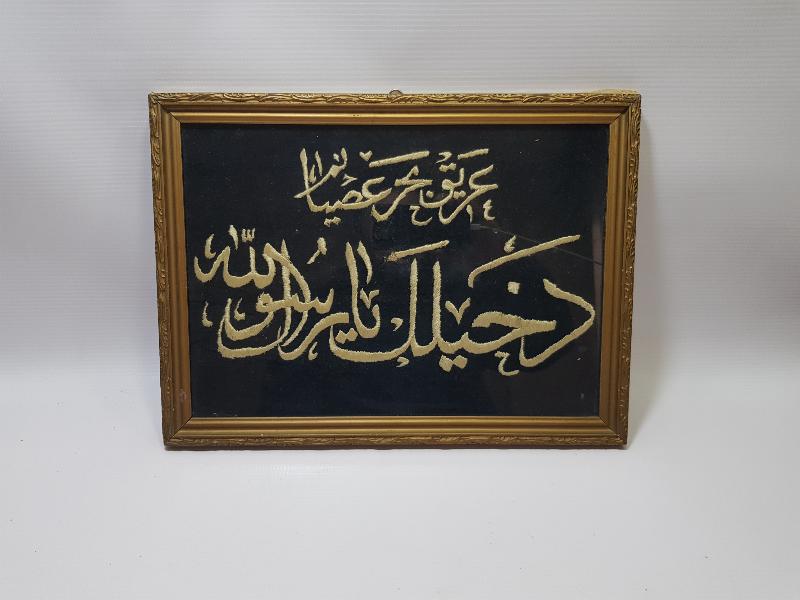 غريق بحر عصيانم
دخيلك يا رسول الله